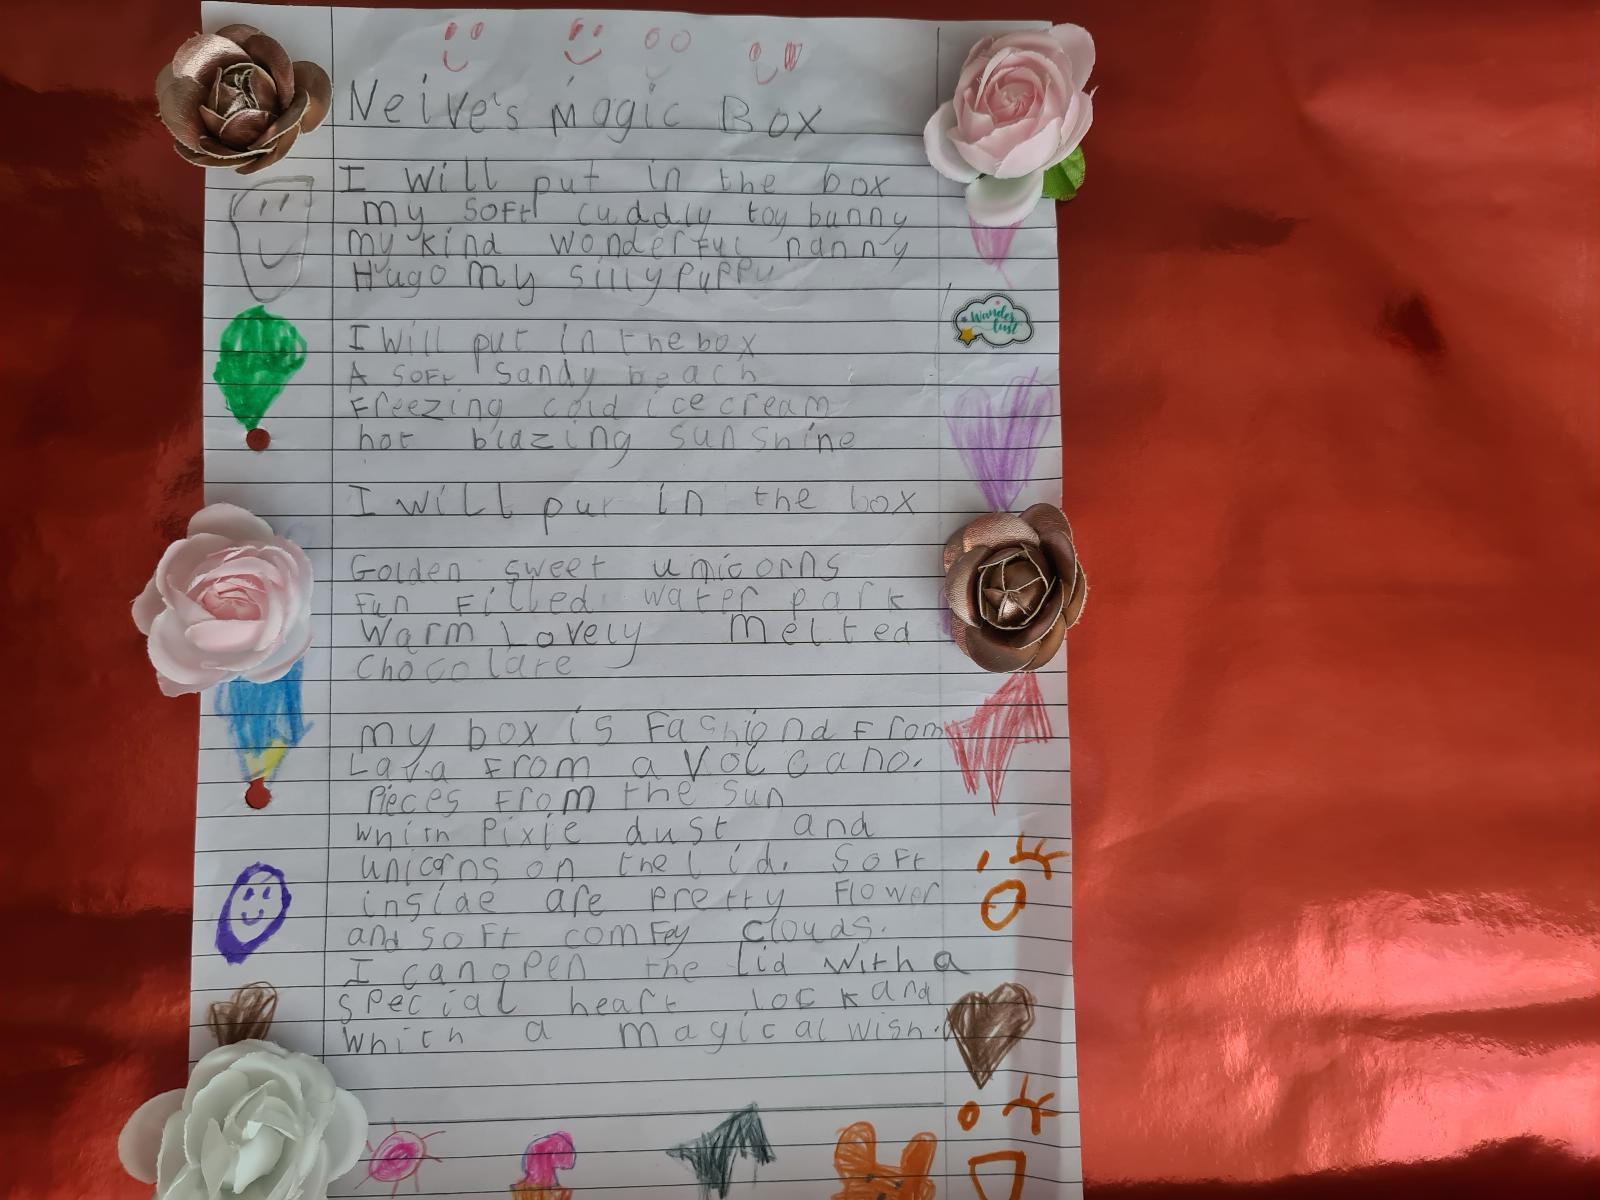 Neive's Magic Box
I will put in the box
my soft cuddly toy bunny
my kind wonderful nanny
Hugo my silly puppy
I will put in the box
A soft sandy beach
Wander
lust
Freezing cold ice cream
hot blazing sunshine
I will put in the box
Golden sweet unicorns
Fun Filled water park
Warm Lovely Melted
Chocolate
my box is Fashiond From
Lava From a Volcano.
Pieces From the Sun
whith Pixie dust and
unicorns on the lid. Soft
inside are pretty Flower
and soft comfey clouds.
I can open the Lid with a
special heart lock and
whith a magical wish.